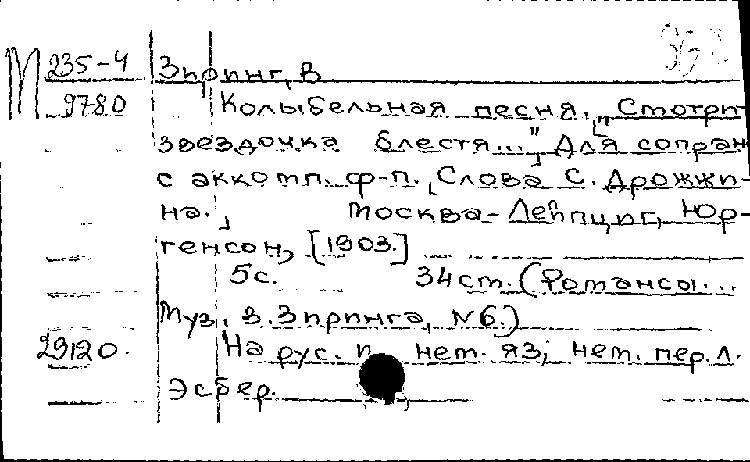 М 235-4 Эпринг, В
9780 Колыбельная песня. „Смотрит
звездочка блестя...“ Для сопран
с аккомп. ф-п. [Слова С. Дрожжи-
на.] Москва-Лейпциг, Юр-
генсон, [1903.]
5с. 34см. (Романсы...
Муз. В. Эпринга, №6.)
29120. На рус. и нем. яз; нем. пер. Л.
Эсбер.